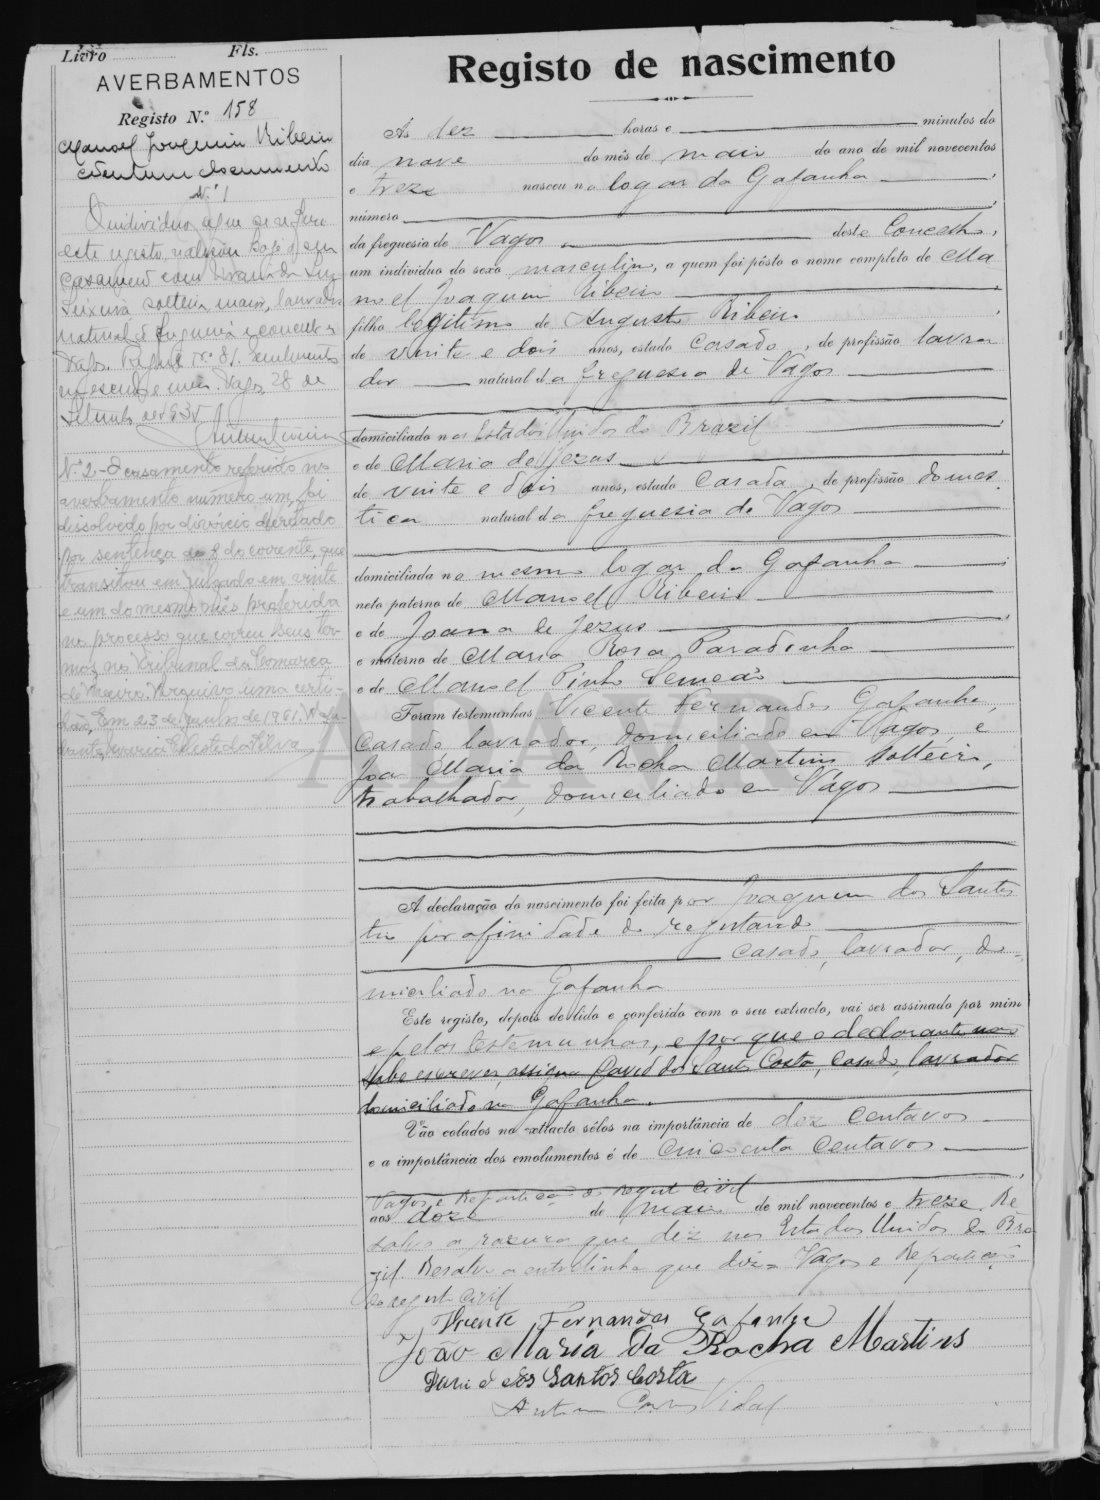 Livro Fls.
AVERBAMENTOS
Registo N.º 158
Manoel Joaquim Ribeiro
cento e um documento
N.º 1
O individuo a que se refere
este registo, realisou hoje o seu
casamento com da Luz
Teixeira solteira, maior, lavradora
natural de freguesia e concelho
Vagos. Registo n.º 81. Emolumentos
um escudo e meio. Vagos, 28 de
Setembro de 1935
Nº 2 - O casamento referido no
averbamento número um, foi
dissolvido por divórcio decretado
por sentença de 8 do corrente, que
transitou em julgado em vinte
e um do mesmo mês proferida
no processo que correu seus ter-
mos no Tribunal da Comarca
de Aveiro. Arquivo uma certi-
dão. Em 23 de Junho de 1961. A Aju-
dante, Celeste da Silva
Registo de nascimento
Ás dez horas e minutos do
dia nove do mês de maio do ano de mil novecentos
e treze nasceu no logar da Gafanha
número
da freguesia de Vagos deste Concelho,
um individuo do sexo masculino, a quem foi pôsto o nome completo de Ma
noel Joaquim Ribeiro
filho legitimo de Augusto Ribeiro
de vinte e dois anos, estado casado, de profissão lavra
dor natural da freguesia de Vagos
domiciliado nos Estados Unidos do Brazil
e de Maria de Jezus
de vinte e dois anos, estado casada, de profissão domes
tica natural da freguesia de Vagos
domiciliada no mesmo logar da Gafanha
neto paterno de Manoel Ribeiro
e de Joana de Jezus
e materno de Maria Rosa Paradinha
e de Manoel Pinho Semeão
Foram testemunhas Vicente Fernandes Gafanha,
casado, lavrador, domiciliado em Vagos, e
João Maria da Rocha Martins solteiro,
trabalhador, domiciliado em Vagos
ADAVR
A declaração do nascimento foi feita por Joaquim dos Santos
tio por afinidade do registando
casado, lavrador, do-
miciliado na Gafanha
Este registo, depois de lido e conferido com o seu extracto, vai ser assinado por mim
e pelas testemunhas, e por que o declarante não
sabe escrever, assigna David dos Santos Costa, casado, lavrador
domiciliado na Gafanha.
Vão colados no extracto sêlos na importância de dez centavos
e a importância dos emolumentos é de cincoenta centavos
Vagos e Repartição do registo civil
aos doze de maio de mil novecentos e treze. Re
salvo a razura que diz nos Estados Unidos do Bra
zil. Resalvo a entrelinha que diz = Vagos e Repartição
do registo civil
Vicente Fernandes Gafanha
João Maria da Rocha Martins
David dos Santos Costa
Vidal